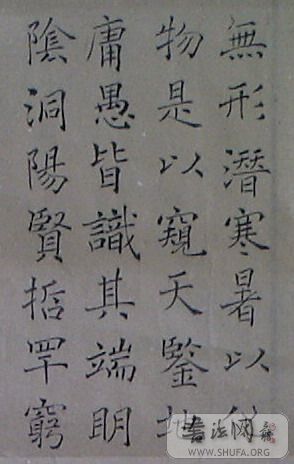 無形潛寒暑以化
物是以窺天鑒地
庸愚皆識其端明
陰洞陽賢哲罕窮
書法网
WWW.SHUFA.ORG